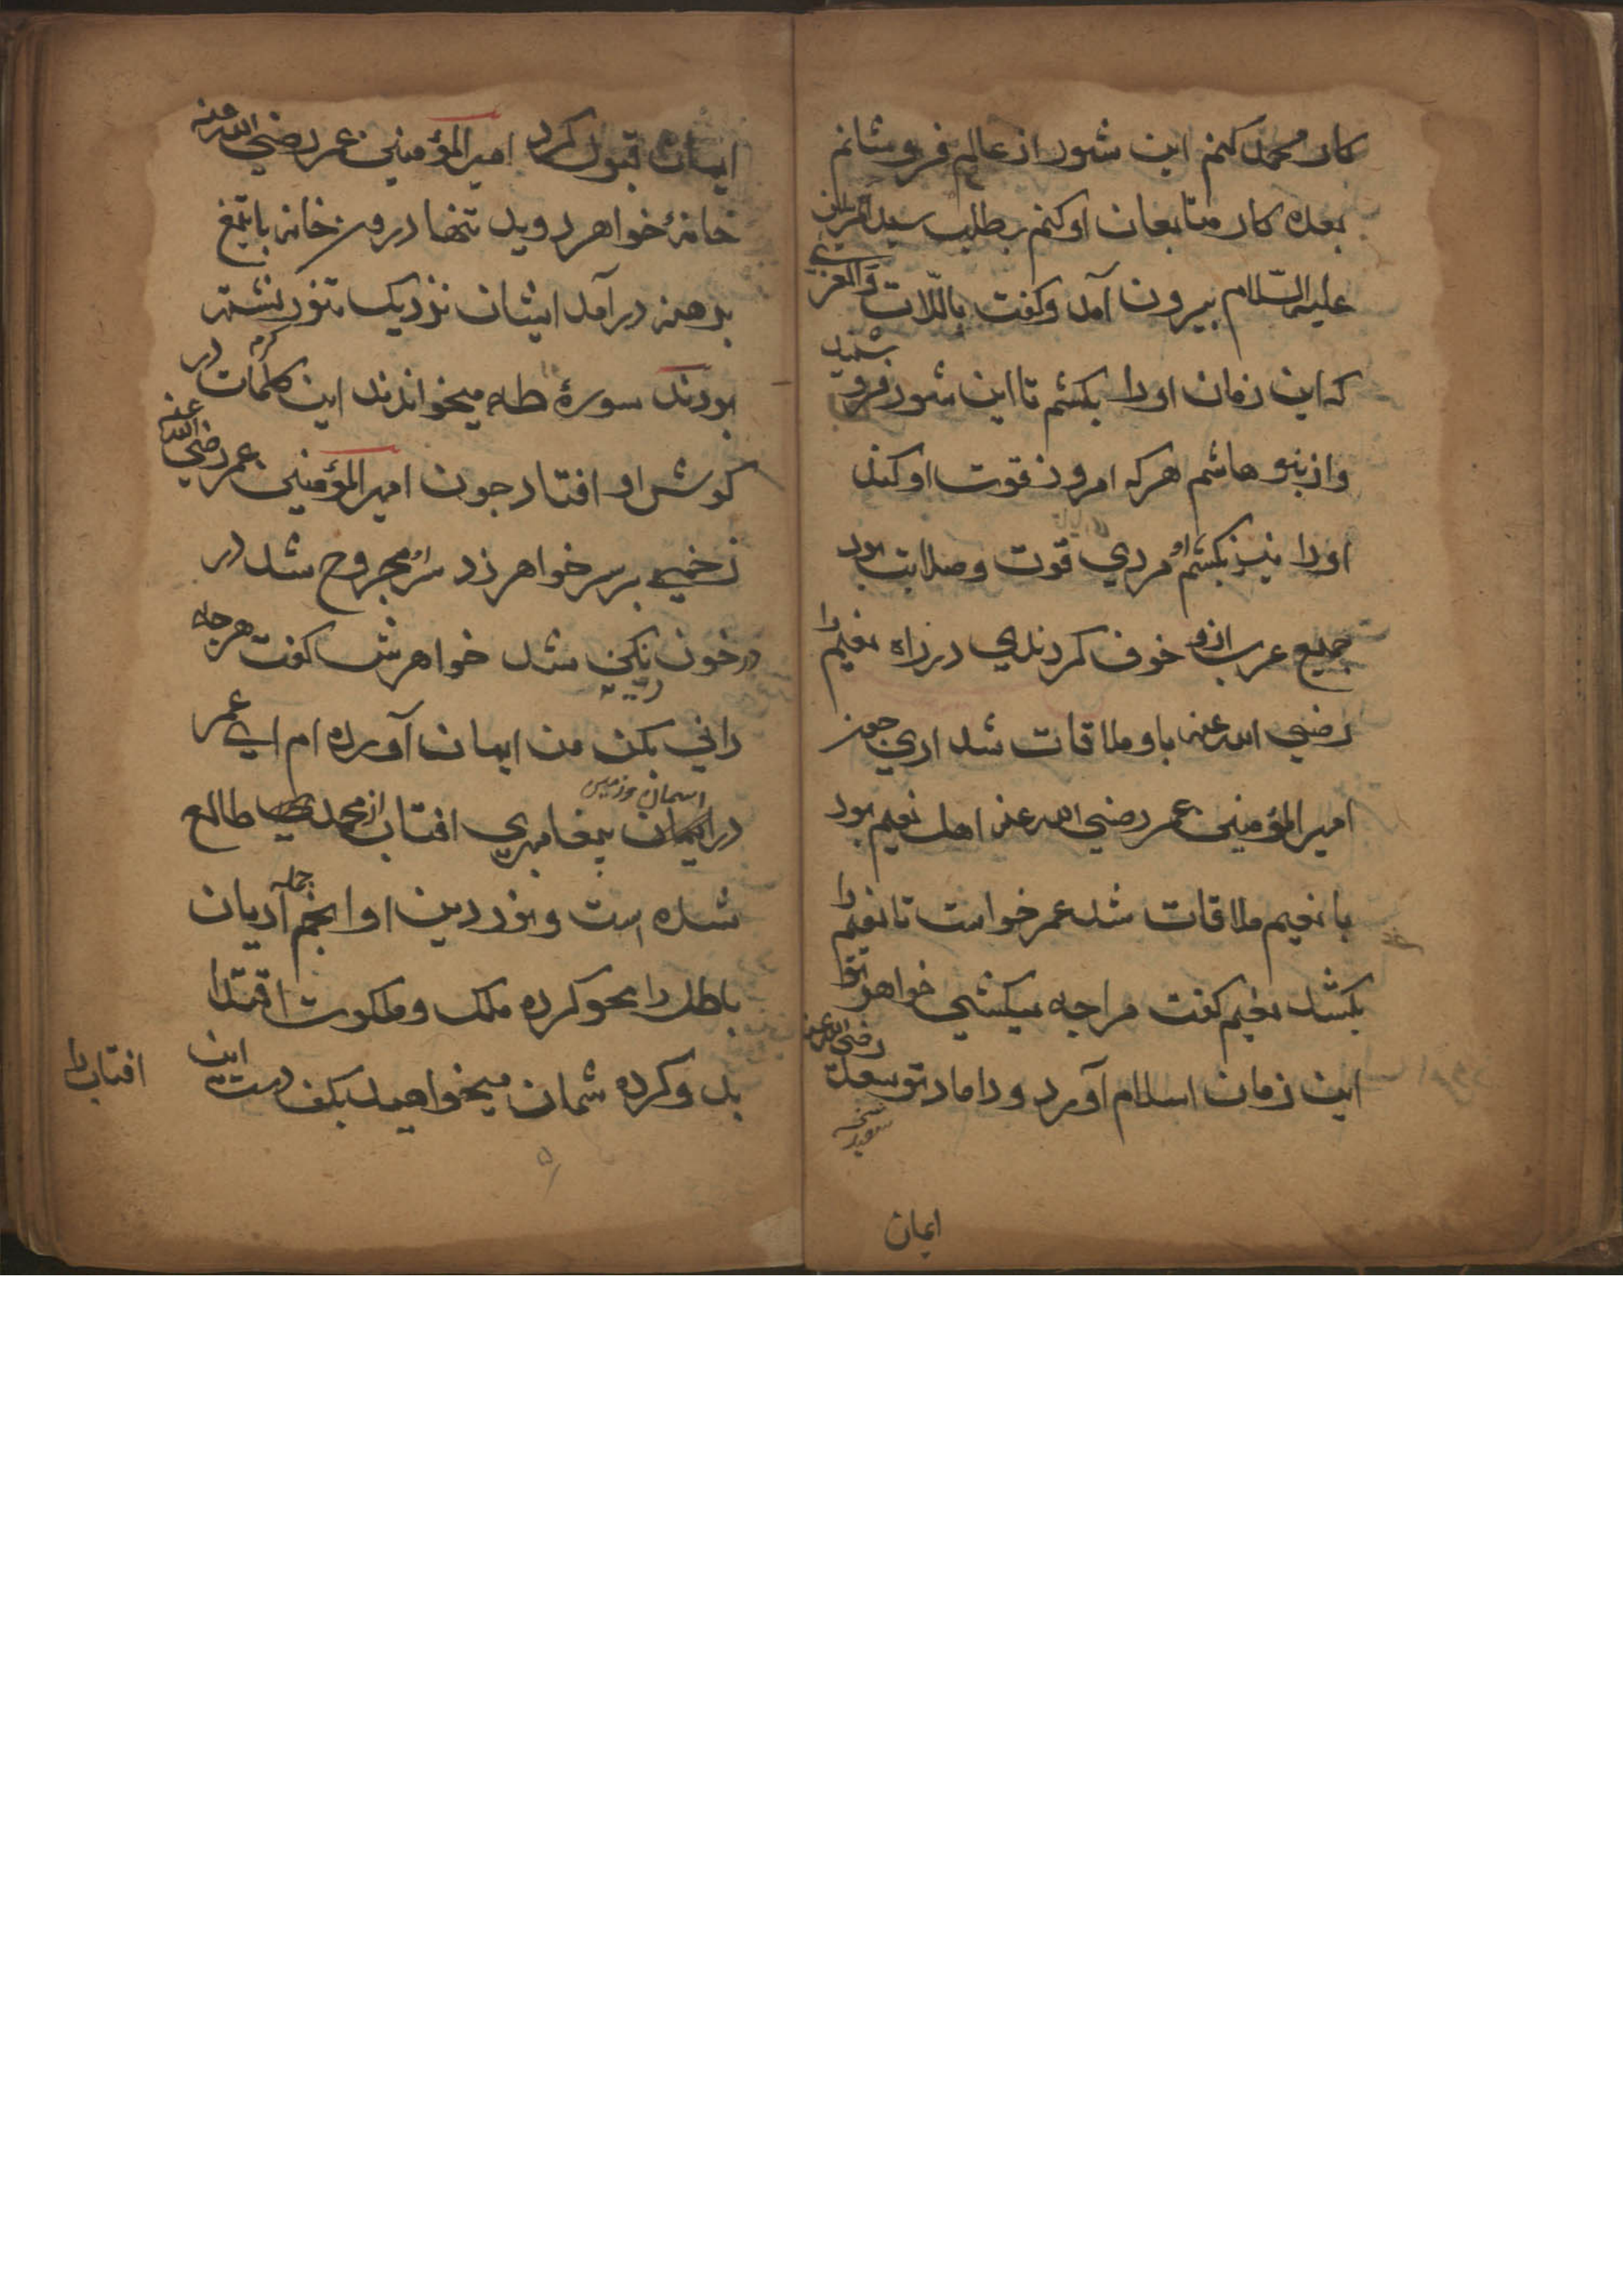 کار محمد کنم این شور از عالم فرو شانم
بعده کار متابعان او کنم بطلب سید المرسلین
علیه السّلام بیرون آمد و کفت باللّات والعزی
که این زمان اورا بکشم تا این شور فرو نشیند
واز بنو هاشم هرکه امروز قوت او کند
اورا نیز بکشم او مردی قوت وصلابت بود
جمیع عرب ازو خوف کردندی در راه نعیم را
رضی الله عنه باو ملاقات شد اری چون
امیرالمؤمنین عمر رضی الله عنه اهل نعیم بود
با نعیم ملاقات شد عمر خواست تا نعیم را
بکشد نعیم کفت مرا جه میکشی خواهر تو
این زمان اسلام آورد و داماد تو سعد رضی الله عنه
نسخه سعید
ایمان
ایمان قبول کرد امیرالمؤمنین عمر رضی الله عنه
خانهٔ خواهر دوید تنها درون خانه با تیغ
برهنه درآمد ایشان نزدیک تنور نشسته
بودند سورهٔ طه میخواندند این کلمات کرم در
کوش او افتاد جون امیرالمؤمنین عمر رضی الله عنه
زخمی بر سر خواهر زد سر مجروح شد در
در خون رنکین شد خواهرش کفت هرجه
دانی بکن من ایمان آورده ام ای عمر
در اسمان و زمین پیغامبری افتاب از محمد طالع
شده است ونور دین او انجم جمله ادیان
باطل را محو کرده ملک وملکوت اقتدا
بدو کرده شمان میخواهید بکف دست این
افتاب را
۵